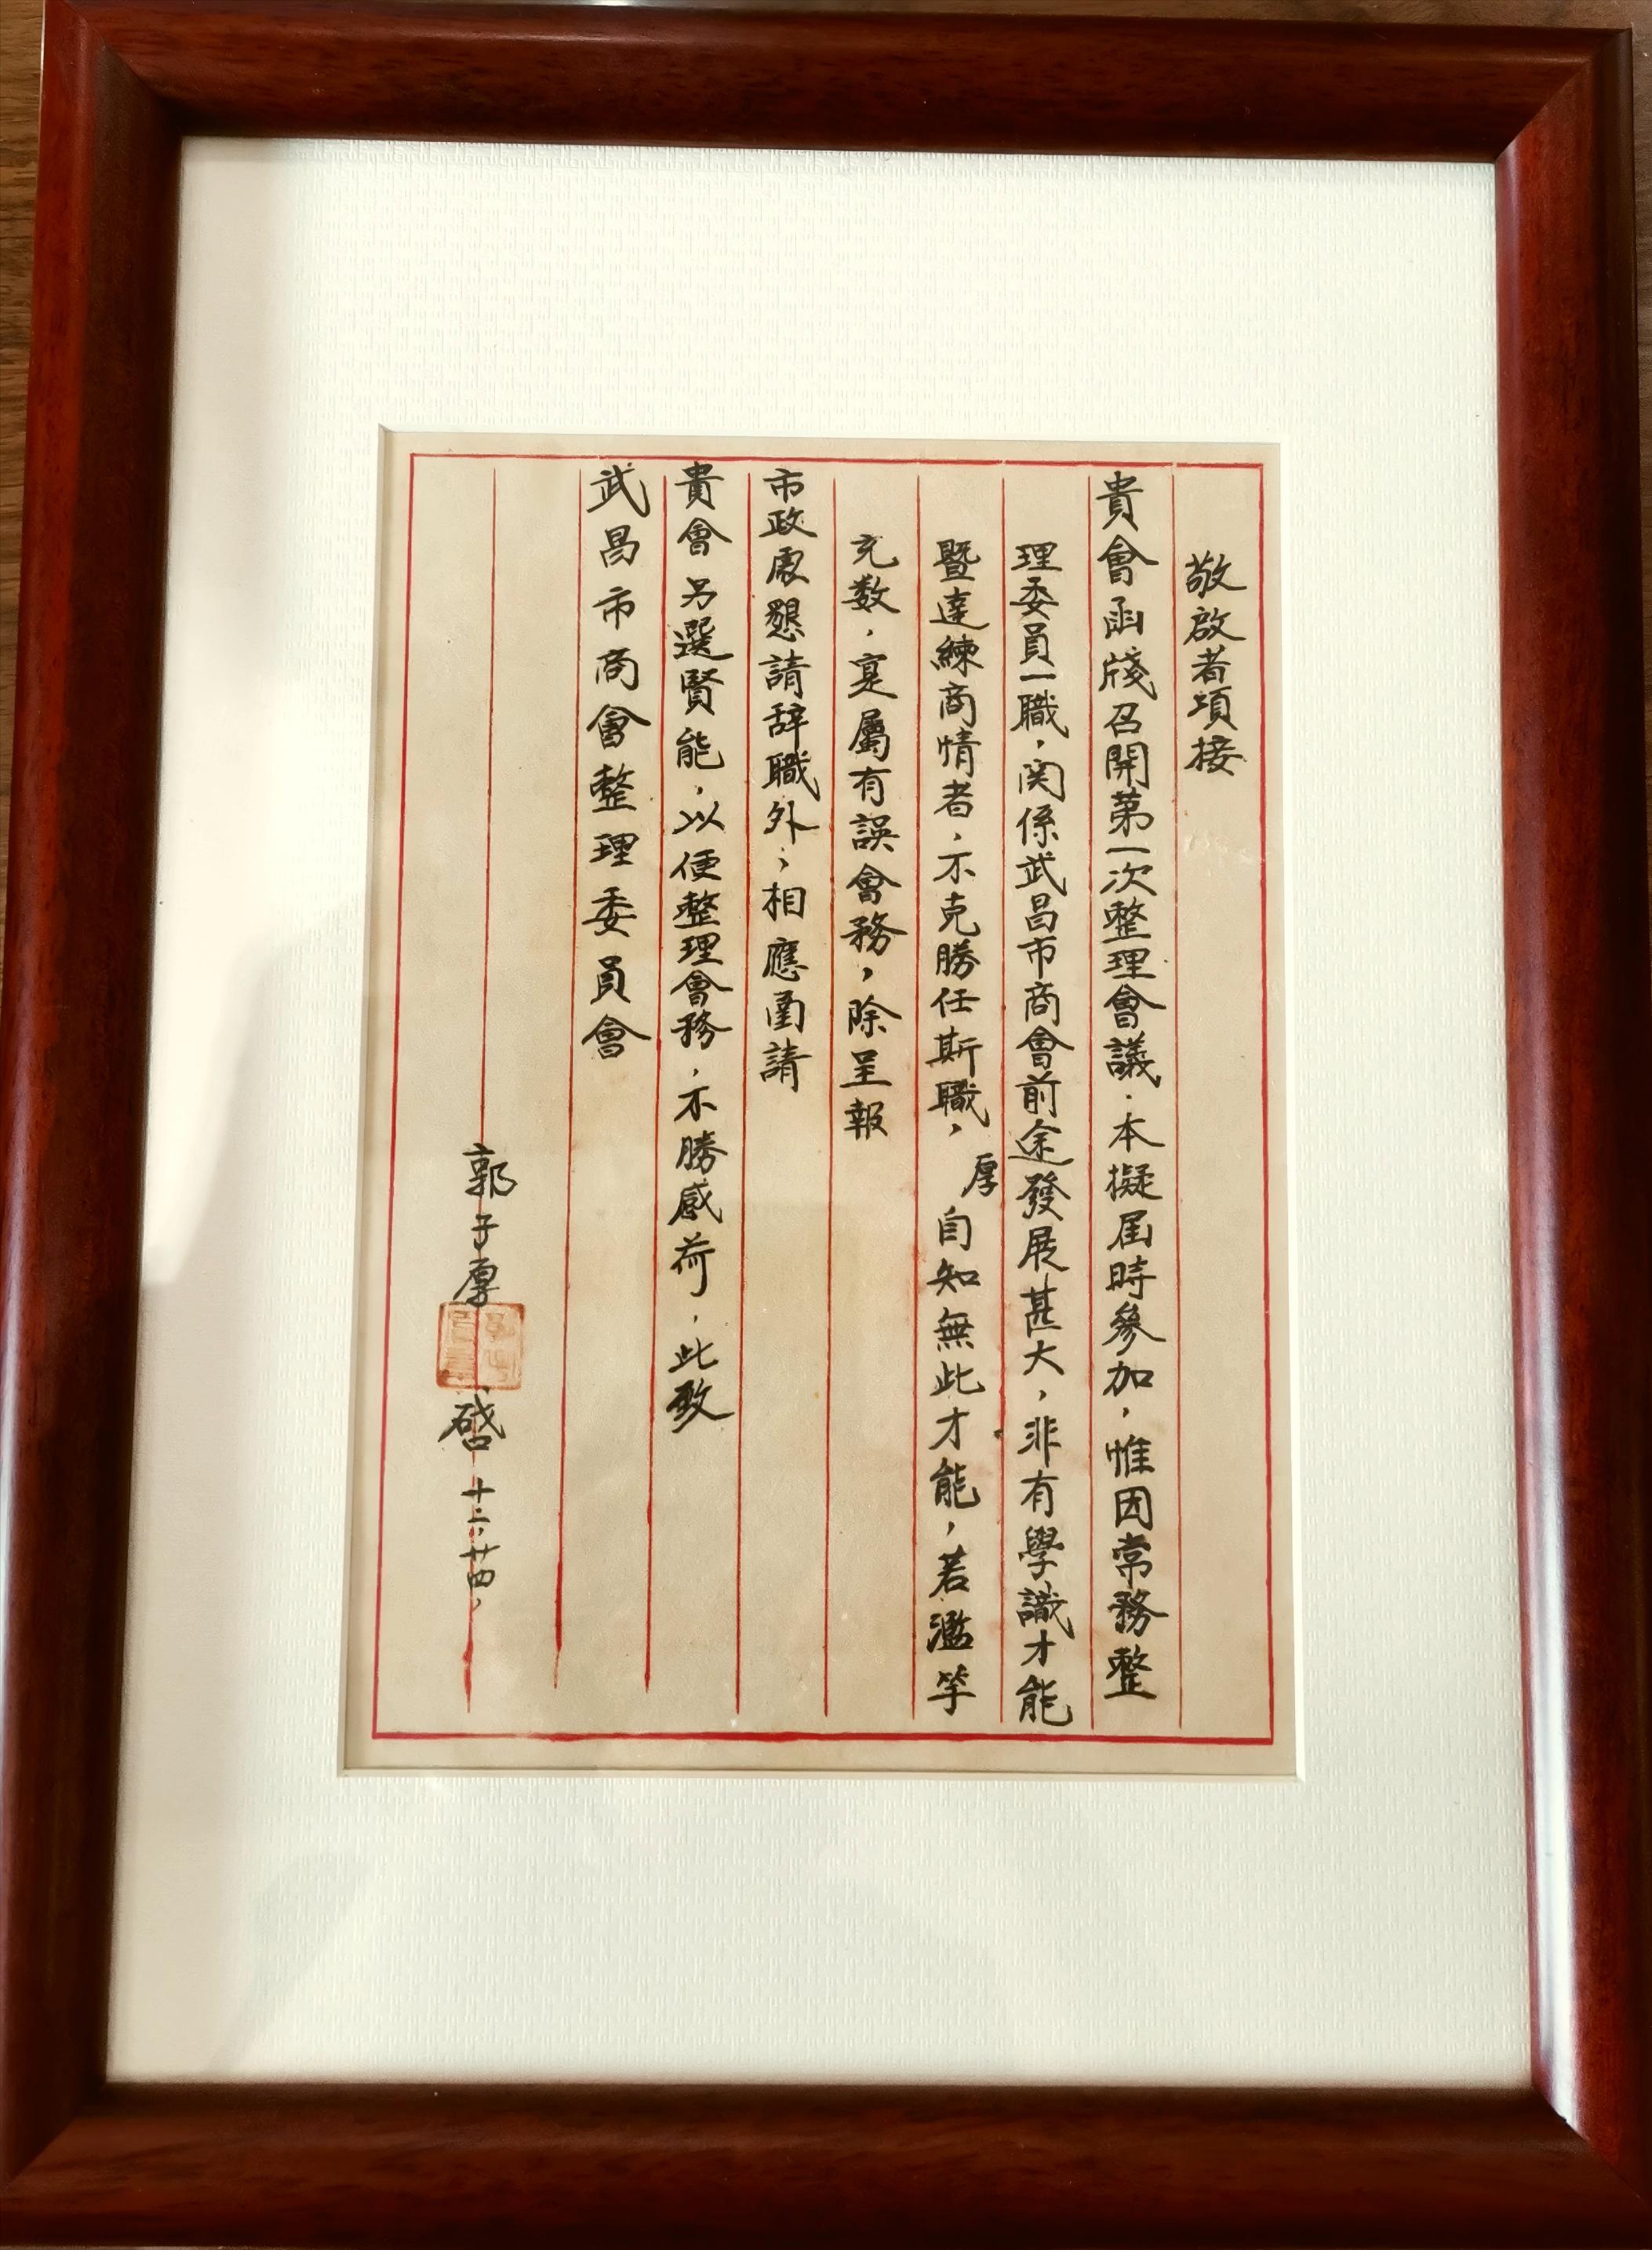 敬啟者頃接
貴會函牋召開第一次整理會議．本擬屆時參加，惟因常務整
理委員一職，関係武昌市商會前途發展甚大，非有學識才能
暨達練商情者，不克勝任斯職，厚自知無此才能，若濫竽
充数，寔屬有誤會務，除呈報
市政處懇請辞職外，相應圅請
貴會另選賢能，以便整理會務，不勝感荷，此致
武昌市商會整理委員會
郭子厚 啓 十二，廿四，